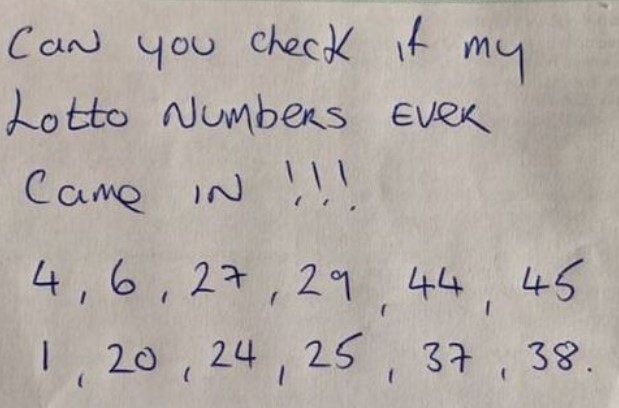 Can you check if my
Lotto Numbers Ever
Came in !!!
4, 6, 27, 29, 44, 45
1, 20, 24, 25, 37, 38.